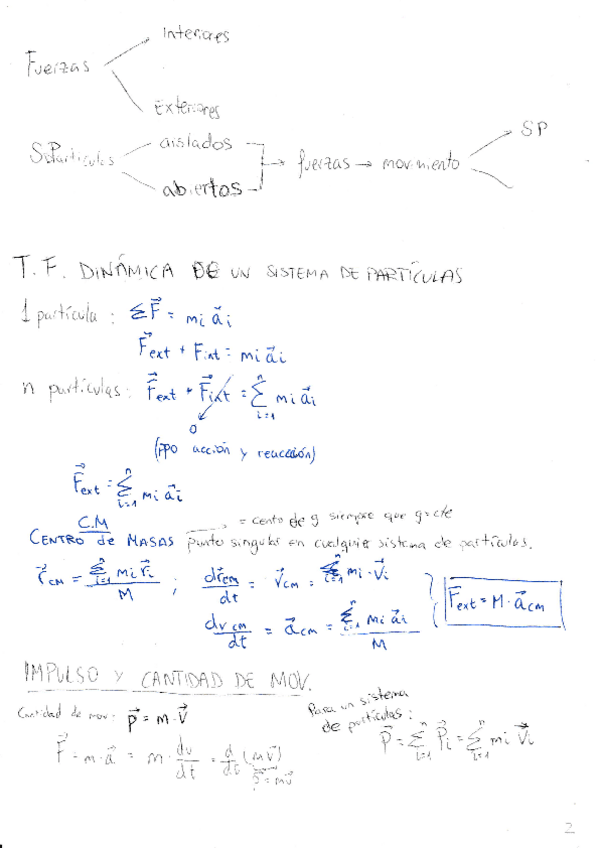 Fuerzas
Interiores
Exteriores
S.Partículas
aislados
abiertos
fuerzas → movimiento
SP
T.F. DINÁMICA DE UN SISTEMA DE PARTÍCULAS
1 partícula : ΣF⃗ = mi a⃗i
F⃗ext + Fint = mi a⃗i
n partículas: F⃗ext + F⃗int = Σ(i=1, n) mi a⃗i
0
(ppo acción y reacción)
F⃗ext = Σ(i=1, n) mi a⃗i
C.M → = cento de g siempre que g=cte
CENTRO de MASAS punto singular en cualquier sistema de partículas.
r⃗CM = Σ(i=1, n) mi r⃗i / M ; dr⃗cm/dt = v⃗CM = Σ(i=1, n) mi · v⃗i
dv cm/dt = a⃗CM = Σ(i=1, n) mi a⃗i / M
F⃗ext = M · a⃗CM
IMPULSO Y CANTIDAD DE MOV.
Cantidad de mov: p⃗ = m · v⃗
F⃗ = m · a⃗ = m · dv/dt = d/dt (m v⃗)
p⃗ = mv⃗
Para un sistema
de partículas :
p⃗ = Σ(i=1, n) p⃗i = Σ(i=1, n) mi v⃗i
2